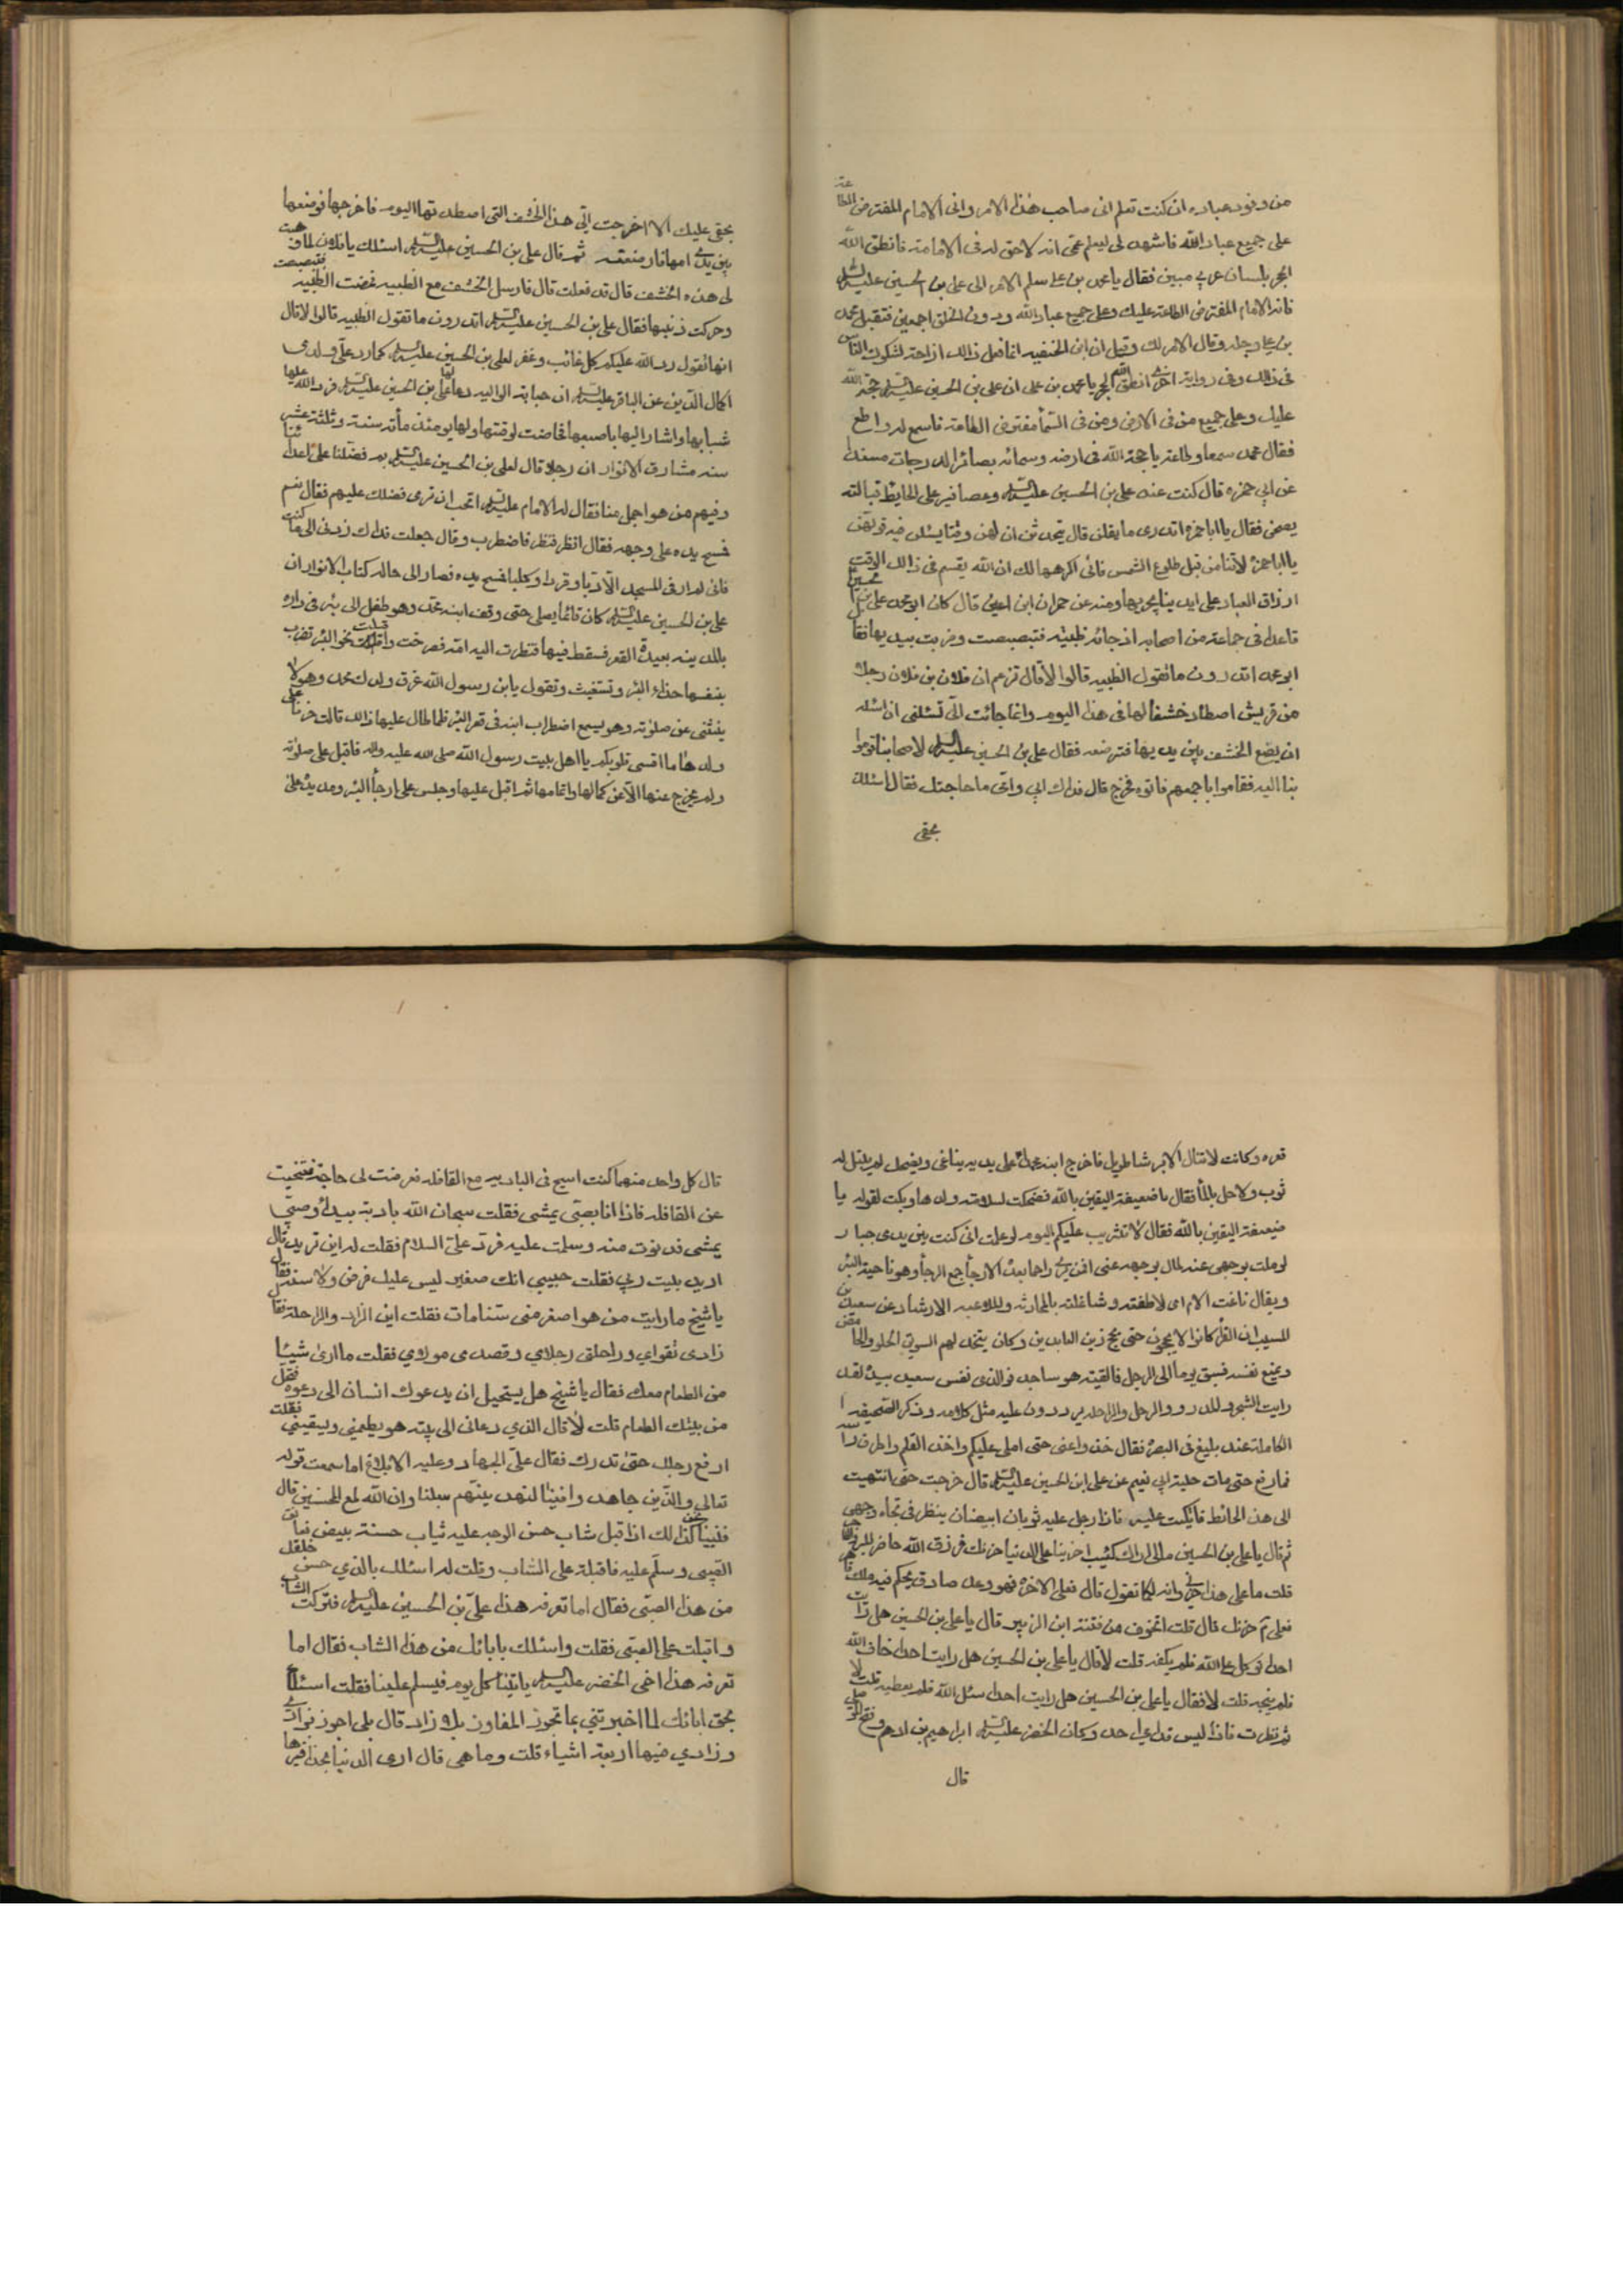 من وفود عباده ان كنت تعلم انى صاحب هذا الامر وانى الامام المفترض الطاعة
على جميع عباد الله فاشهد لى ليعلم عمى انه لا حق له فى الامامة فانطق الله
الحجر بلسان عربي مبين فقال يا محمد بن على سلم الامر الى على بن الحسين عليه السلم
فانه الامام المفترض الطاعة عليك وعلى جميع عباد الله دون الخلق اجمعين فتقبل محمد
بن على رجله وقال الامر لك وقيل ان ابن الحنفيه انما فعل ذالك ازاحة لشكوك الناس
فى ذالك وفى رواية اخرى انطق الله الحجر يا محمد بن على ان على بن الحسين عليه السلم حجة الله
عليك وعلى جميع من فى الارض ومن فى السماء مفترض الطاعة فاسمع له واطع
فقال محمد سمعا وطاعة يا حجة الله فى ارضه وسمائه بصائر الدرجات مسندا
عن ابي حمزه قال كنت عند على بن الحسين عليه السلم وعصافير على الحايط قبالته
يصحن فقال يا ابا حمزه اتدرى ما يقلن قال يتحدثن ان لهن وقتا يسئلن فيه قوتهن
يا ابا حمزة لا تنامن قبل طلوع الشمس فانى اكرهها لك ان الله يقسم فى ذالك الوقت
ارزاق العباد على ايدينا يجريها ومنه عن حمران ابن اعين قال كان ابو محمد على بن الحسين
قاعدا فى جماعة من اصحابه اذ جائته ظبية فتبصبصت وضربت بيديها فقال
ابو محمد اتدرون ما تقول الظبيه قالوا لا قال تزعم ان فلان بن فلان رجلا
من قريش اصطاد خشفا لها فى هذا اليوم وانما جائت الى تسئلنى ان اسئله
ان يضع الخشف بين يديها فترضعه فقال على بن الحسين عليه السلم لاصحابنا قوموا
بنا اليه فقاموا باجمعهم فاتوه فخرج قال فداك ابي وامى ما حاجتك فقال اسئلك
بحقى
بحقى عليك الا اخرجت الى هذا الخشف التى اصطدتها اليوم فاخرجها فوضعها
بين يدى امها فارضعته ثم قال على بن الحسين عليه السلم اسئلك يا فلان لما وهبت
لى هذه الخشف قال قد فعلت قال فارسل الخشف مع الظبيه فمضت الظبيه فتبصبصت
وحركت ذنبها فقال على بن الحسين عليه السلم اتدرون ما تقول الظبيه قالوا لا قال
انها تقول رد الله عليكم كل غائب وغفر لعلى بن الحسين عليه السلم كما رد على ولدى
اكمال الدين عن الباقر عليه السلم ان حبابة الوالبيه دعا لها على بن الحسين عليه السلم فرد الله عليها
شبابها واشار اليها باصبعها فحاضت لوقتها ولها يومئذ مأة سنة وثلثة عشر
سنه مشارق الانوار ان رجلا قال لعلى بن الحسين عليه السلم بم فضلنا على اعدائنا
وفيهم من هو اجمل منا فقال له الامام عليه السلم اتحب ان ترى فضلك عليهم فقال نعم
فمسح يده على وجهه فقال انظر فنظر فاضطرب وقال جعلت فداك ردنى الى ما كنت
فانى لم ار فى المسجد الا دبا وقردا وكلبا فمسح يده فصار الى حاله كتاب الانوار ان
على بن الحسين عليه السلم كان قائما يصلى حتى وقف ابنه محمد وهو طفل الى بئر فى داره
بالمدينه بعيدة القعر فسقط فيها فنظرت اليه امه فصرخت واقبلت نحو البئر تضرب
بنفسها حذاء البئر وتستغيث وتقول يابن رسول الله غرق ولدك محمد وهو لا
ينثنى عن صلوته وهو يسمع اضطراب ابنه فى قعر البئر فلما طال عليها ذالك قالت حزنا على
ولدها ما اقسى قلوبكم يا اهل بيت رسول الله صلى الله عليه واله فاقبل على صلوته
ولم يخرج عنها الا عن كمالها واتمامها ثم اقبل عليها وجلس على ارجاء البئر ومد يده على
قعره وكانت لا تنال الا برشا طويل فاخرج ابنه محمدا على يديه يناغى ويضحك لم يبتل له
ثوب ولا حل بالماء فقال يا ضعيفة اليقين بالله فضحكت لسلامة ولدها وبكت لقوله يا
ضعيفة اليقين بالله فقال لا تثريب عليكم اليوم لو علمت انى كنت بين يدى جبار
لو ملت بوجهى عنه لمال بوجهه عنى افترى راحما بعده الارجاء جمع الرجا وهو ناحية البئر
ويقال ناغت الام اى لاطفته وشاغلته بالمحادثه والملاعبه الارشاد عن سعيد بن
المسيب ان القراء كانوا لا يحجون حتى يحج زين العابدين وكان يتخذ لهم السويق الحلو والحامض
ويمنع نفسه فسبق يوما الى الرحل فالقيته هو ساجد فوالذى نفس سعيد بيده لقد
رايت الشجر والمدر والرحل والراحله يردون عليه مثل كلامه وذكر الصحيفه
الكاملة عند بليغ فى البصرة فقال خذوا عنى حتى املى عليكم واخذ القلم واطرق راسه
فما رفع حتى مات حلية ابي نعيم عن على ابن الحسين عليه السلم قال خرجت حتى انتهيت
الى هذا الحائط فاتكيت عليه فاذا رجل عليه ثوبان ابيضان ينظر فى تجاه وجهى
ثم قال يا على بن الحسين مالى اراك كئيبا حزينا على الدنيا حزنك فرزق الله حاضر للبر والفاجر
قلت ما على هذا حزنى وانه لكما تقول قال فعلى الاخرة فهو وعد صادق يحكم فيه ملك قاهر
فعلى م حزنك قال قلت اتخوف من فتنة ابن الزبير قال يا على بن الحسين هل رايت
احدا توكل على الله فلم يكفه قلت لا قال يا على بن الحسين هل رايت احدا خاف الله
فلم ينجه قلت لا فقال يا على بن الحسين هل رايت احدا سئل الله فلم يعطيه قلت لا
ثم نظرت فاذا ليس قدامى احد وكان الخضر عليه السلم ابراهيم بن ادهم وفتح الموصلى
قال
قال كل واحد منهما كنت اسيح فى الباديه مع القافله فعرضت لى حاجة فتنحيت
عن القافله فاذا انا بصبى يمشى فقلت سبحان الله بادية بيداء وصبى
يمشى فدنوت منه وسلمت عليه فرد على السلام فقلت له اين تريد قال
اريد بيت ربي فقلت حبيبي انك صغير ليس عليك فرض ولا سنة فقال
يا شيخ ما رايت من هو اصغر منى سنا مات فقلت اين الزاد والراحلة فقال
زادى تقواي وراحلتى رجلاي وقصدى مولاي فقلت ما ارى شيئا
من الطعام معك فقال يا شيخ هل يستحيل ان يدعوك انسان الى دعوة فتحمل
من بيتك الطعام قلت لا قال الذي دعانى الى بيته هو يطعمني ويسقيني فقلت
ارفع رجلك حتى تدرك فقال على الجهاد وعليه الابلاغ اما سمعت قوله
تعالى والذين جاهدوا فينا لنهدينهم سبلنا وان الله لمع المحسنين قال
فبينا نحن كذالك اذ اقبل شاب حسن الوجه عليه ثياب حسنة بيض فعانق
الصبى وسلم عليه فاقبلت على الشاب وقلت له اسئلك بالذي حسن خلقك
من هذا الصبى فقال اما تعرفه هذا على بن الحسين عليه السلم فتركت الشاب
واقبلت على الصبى فقلت واسئلك بابائك من هذا الشاب فقال اما
تعرفه هذا اخى الخضر عليه السلم ياتينا كل يوم فيسلم علينا فقلت اسئلك
بحق ابائك لما اخبرتني بما تجوز المفاوز بلا زاد قال بلى اجوز بزاد
وزادي فيها اربعة اشياء قلت وما هى قال ارى الدنيا بحذافيرها